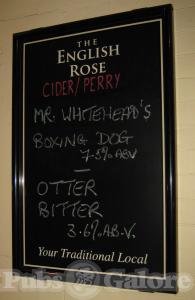 THE
ENGLISH
ROSE
CIDER/PERRY
MR. WHITEHEAD'S
BOXING DOG
7.5% ABV
—
OTTER
BITTER
3.6% A.B.V.
Your Traditional Local
Pubs Galore